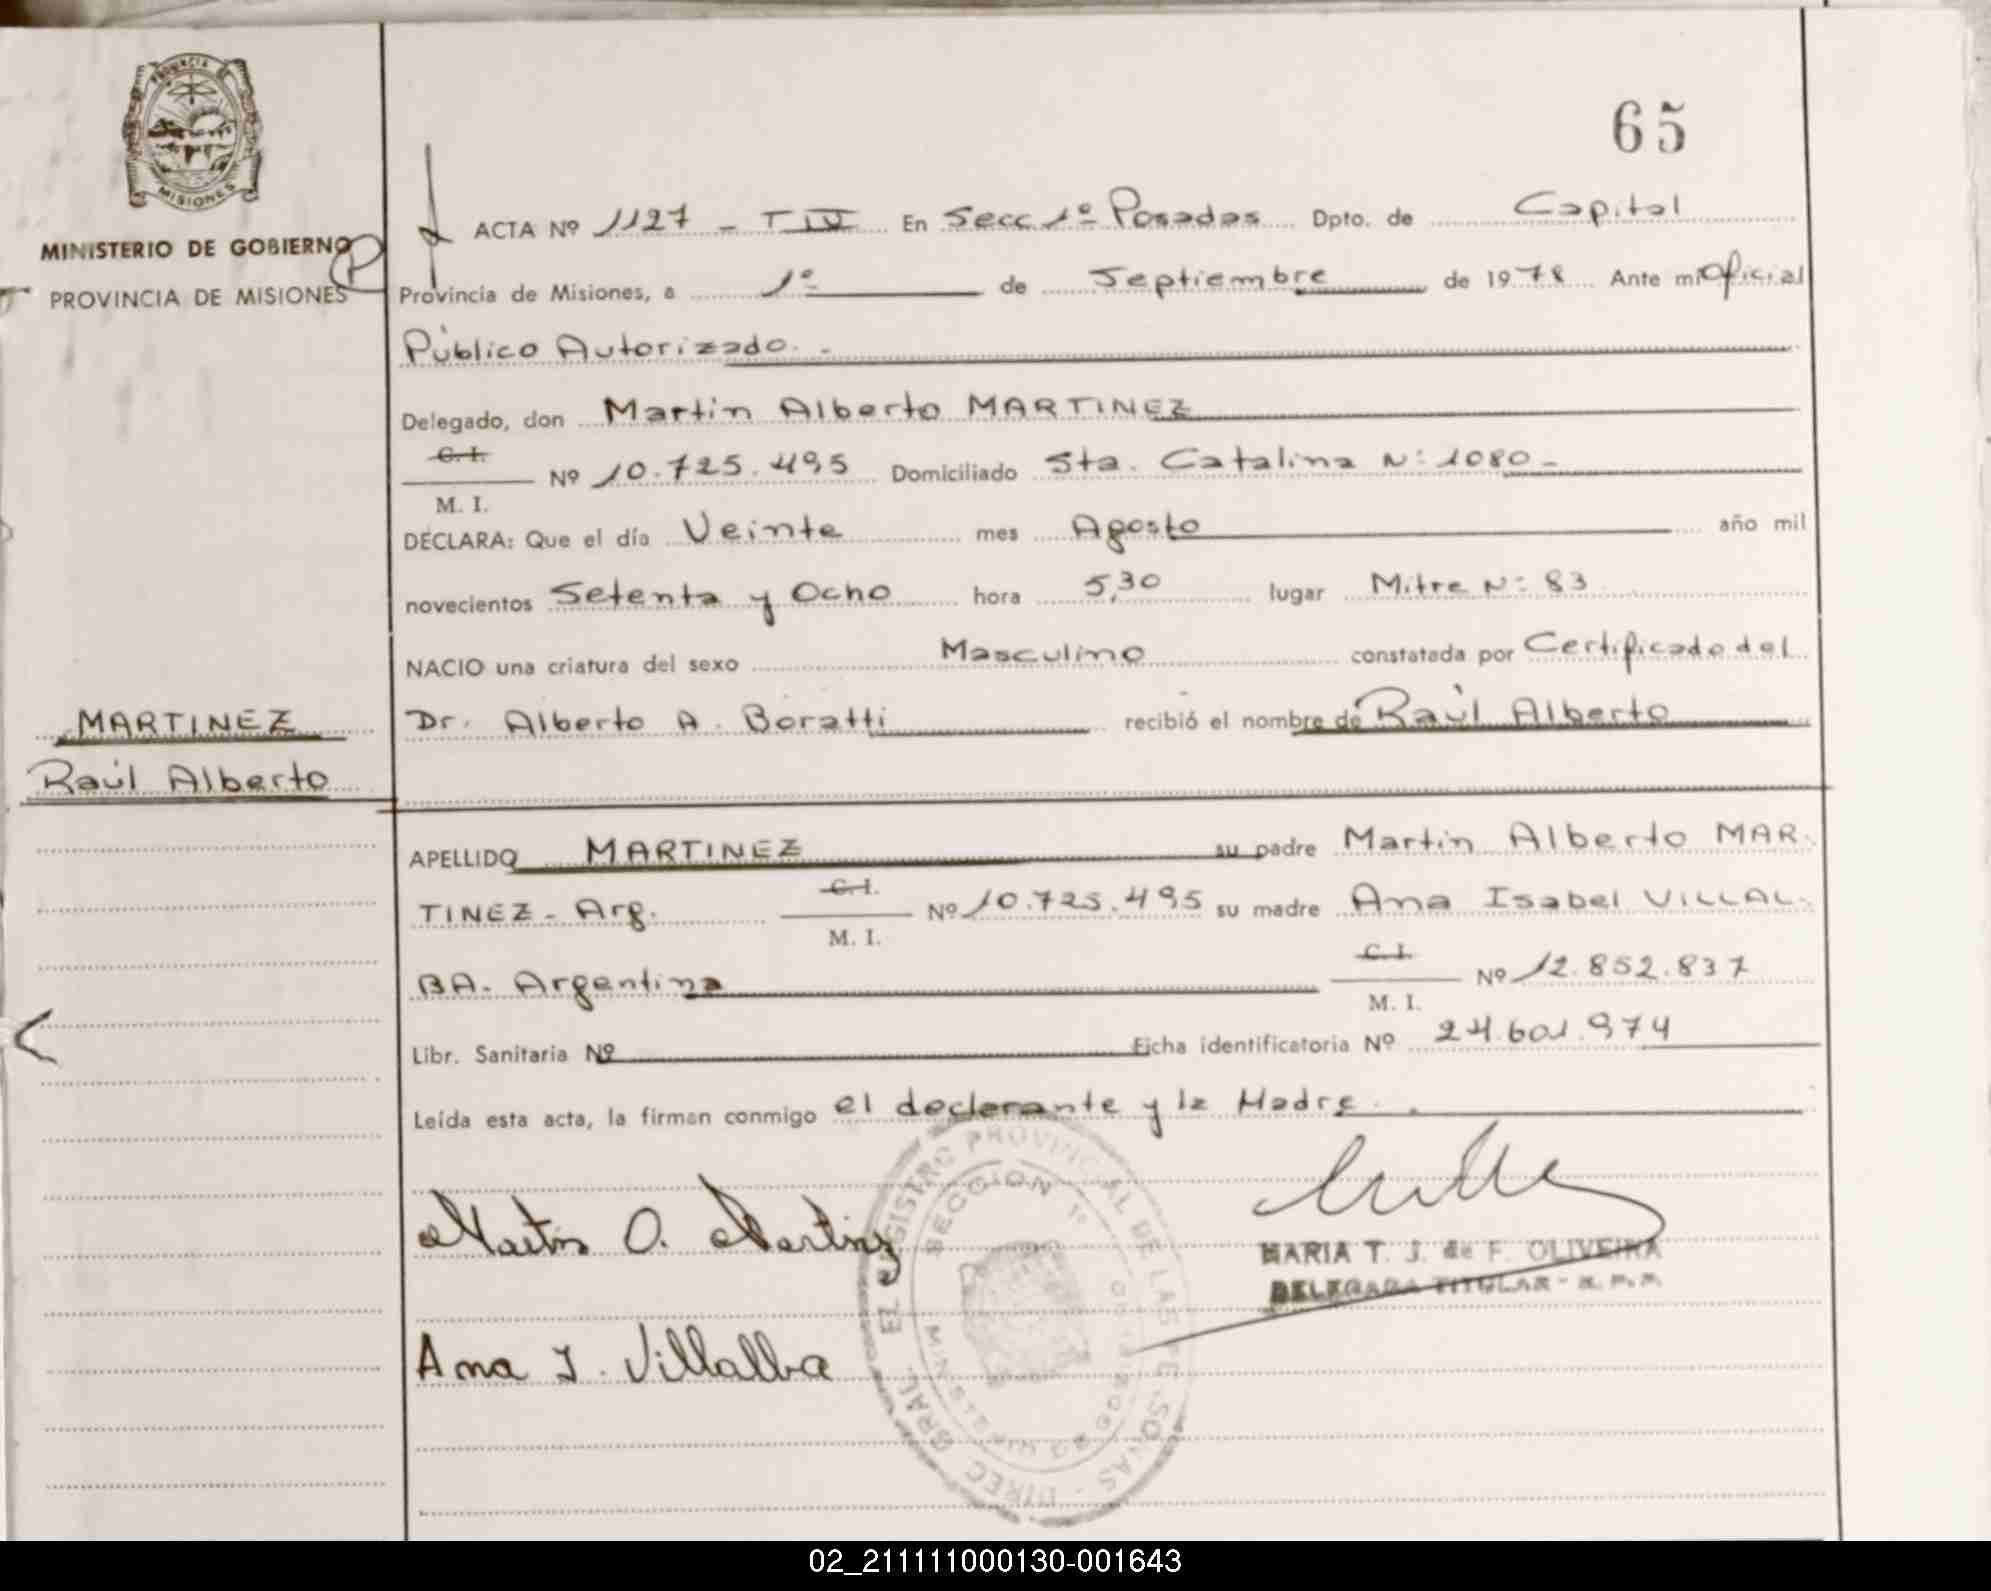 PROVINCIA DE
MISIONES
MINISTERIO DE GOBIERNO
PROVINCIA DE MISIONES
P
65
ACTA Nº 1127 - T IV En Secc 1º Posadas Dpto. de Capital
Provincia de Misiones, a 1º de Septiembre de 1978 Ante mi Oficial
Público Autorizado. -
Delegado, don Martin Alberto MARTINEZ
C. I.
M. I. Nº 10.725.495 Domiciliado Sta. Catalina Nº 1080 -
DECLARA: Que el día Veinte mes Agosto año mil
novecientos Setenta y Ocho hora 5,30 lugar Mitre Nº 83
NACIO una criatura del sexo Masculino constatada por Certificado del
Dr. Alberto A. Boratti recibió el nombre de Raúl Alberto
MARTINEZ
Raúl Alberto
APELLIDO MARTINEZ su padre Martin Alberto MAR-
TINEZ - Arg. C. I. M. I. Nº 10.725.495 su madre Ana Isabel VILLAL-
BA. Argentina C. I. M. I. Nº 12.852.837
Libr. Sanitaria Nº Ficha identificatoria Nº 24.601.974
Leída esta acta, la firman conmigo el declarante y la Madre.
Martin A. Martinez
Ana I. Villalba
MARIA T. J. de F. OLIVEIRA
DELEGADA TITULAR - R. P. P.
DIREC. GRAL. EL REGISTRO PROVINCIAL DE LAS PERSONAS
SECCION 1º
MINISTERIO DE GOBIERNO
02_211111000130-001643